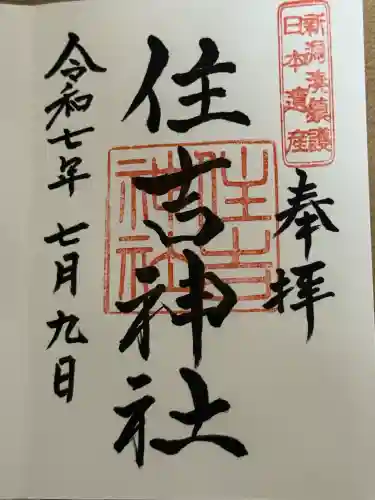 新潟湊鎮護
日本遺産
奉拝
住吉神社
住吉
神社
令和七年七月九日